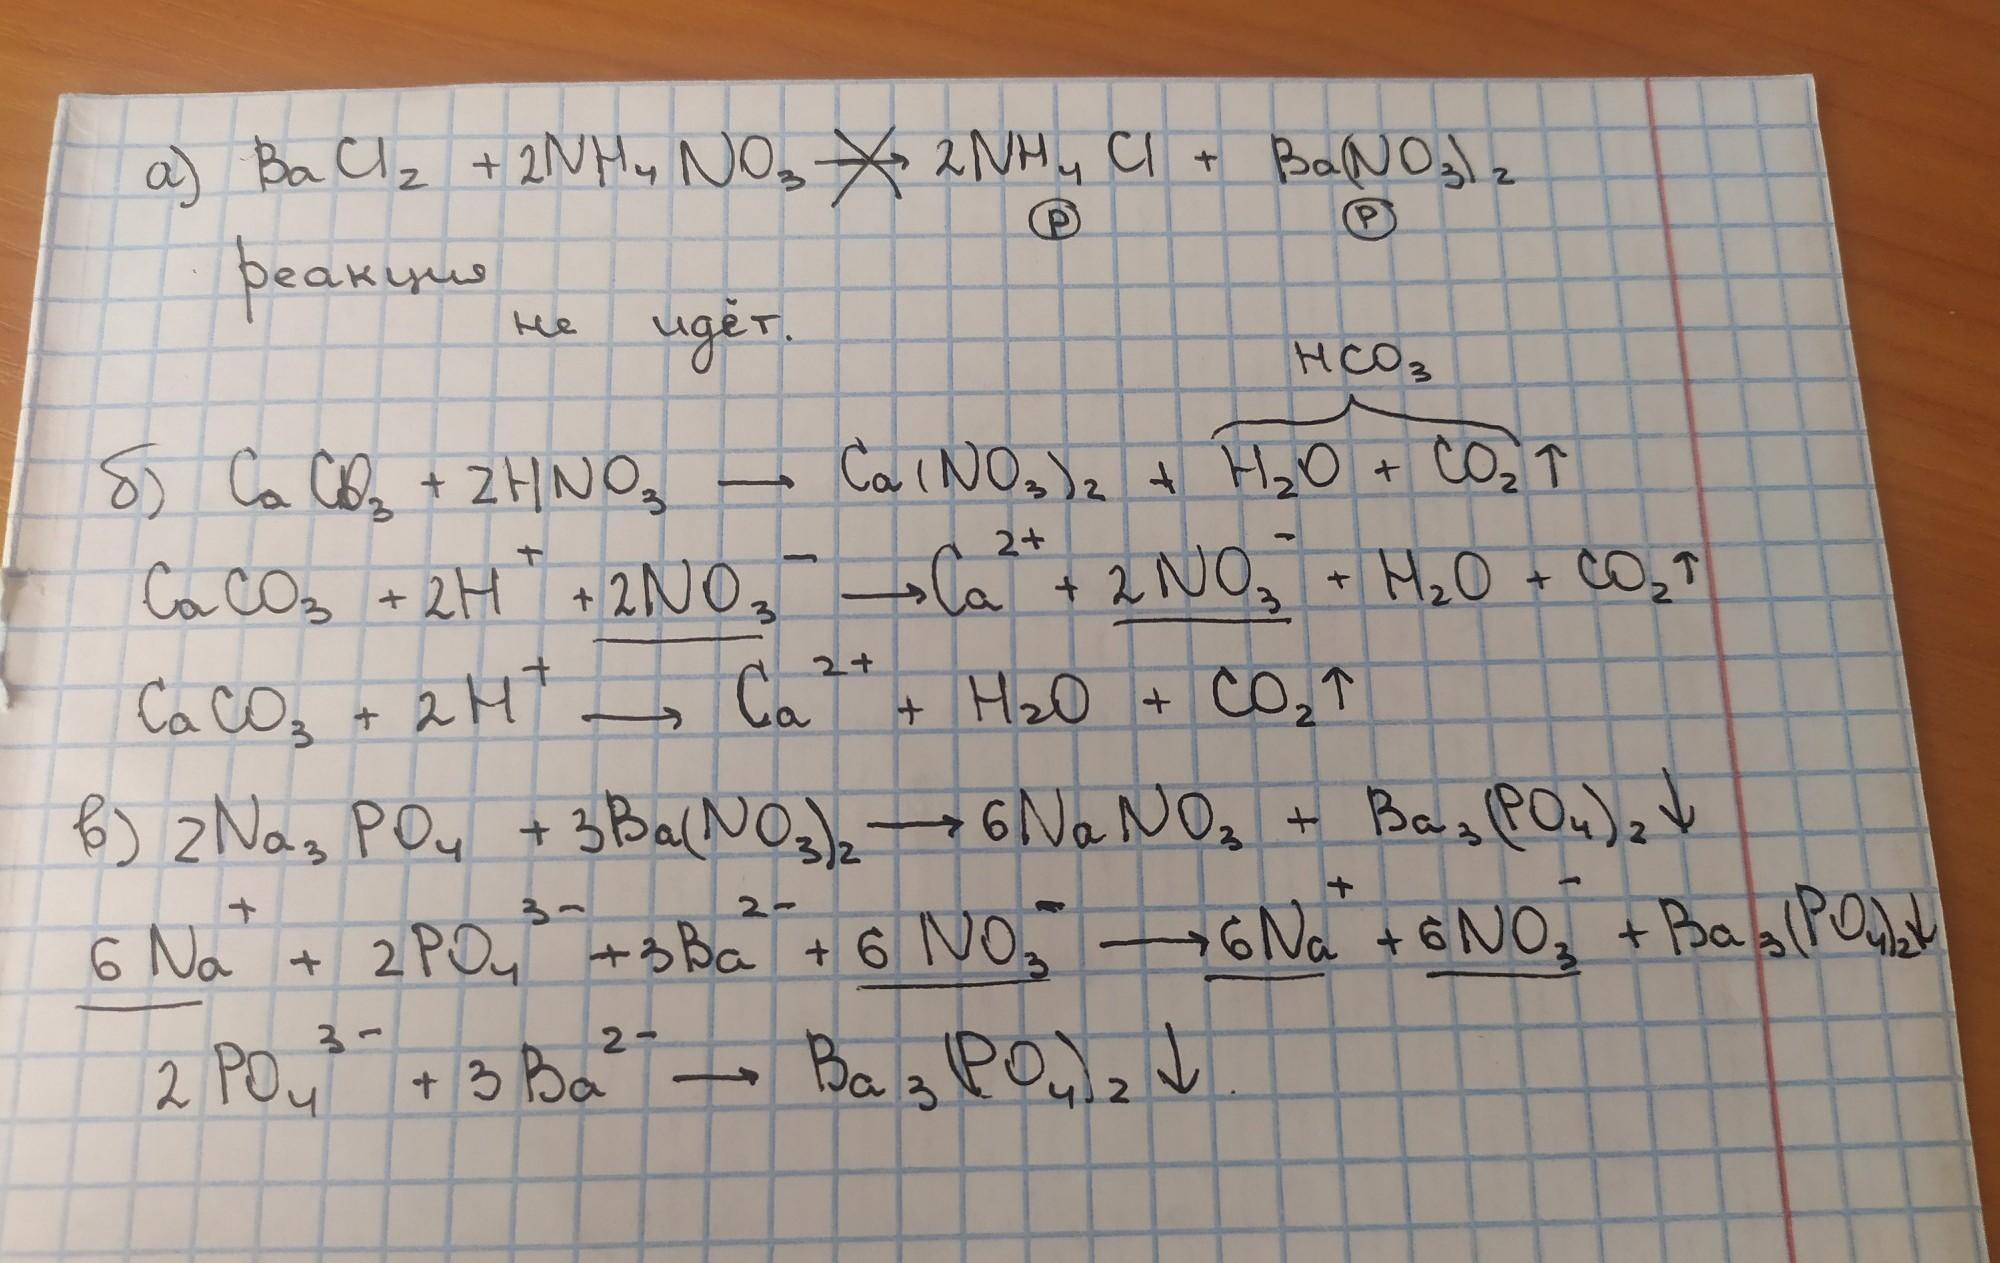 а) BaCl₂ + 2NH₄NO₃ → 2NH₄Cl + Ba(NO₃)₂
Р Р
реакция
не идёт.
HCO₃
б) CaCO₃ + 2HNO₃ → Ca(NO₃)₂ + H₂O + CO₂↑
CaCO₃ + 2H⁺ + 2NO₃⁻ → Ca²⁺ + 2NO₃⁻ + H₂O + CO₂↑
CaCO₃ + 2H⁺ → Ca²⁺ + H₂O + CO₂↑
в) 2Na₃PO₄ + 3Ba(NO₃)₂ → 6NaNO₃ + Ba₃(PO₄)₂↓
6Na⁺ + 2PO₄³⁻ + 3Ba²⁻ + 6NO₃⁻ → 6Na⁺ + 6NO₃⁻ + Ba₃(PO₄)₂↓
2PO₄³⁻ + 3Ba²⁻ → Ba₃(PO₄)₂↓.